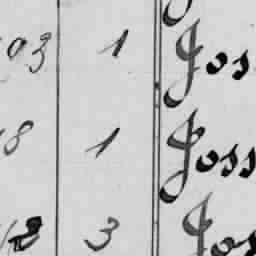 03 1 Jos
8 1 Joss
3 Jos